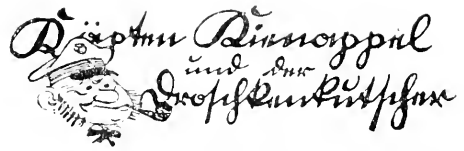 Käpten Kienappel
und der
Droschkenkutscher